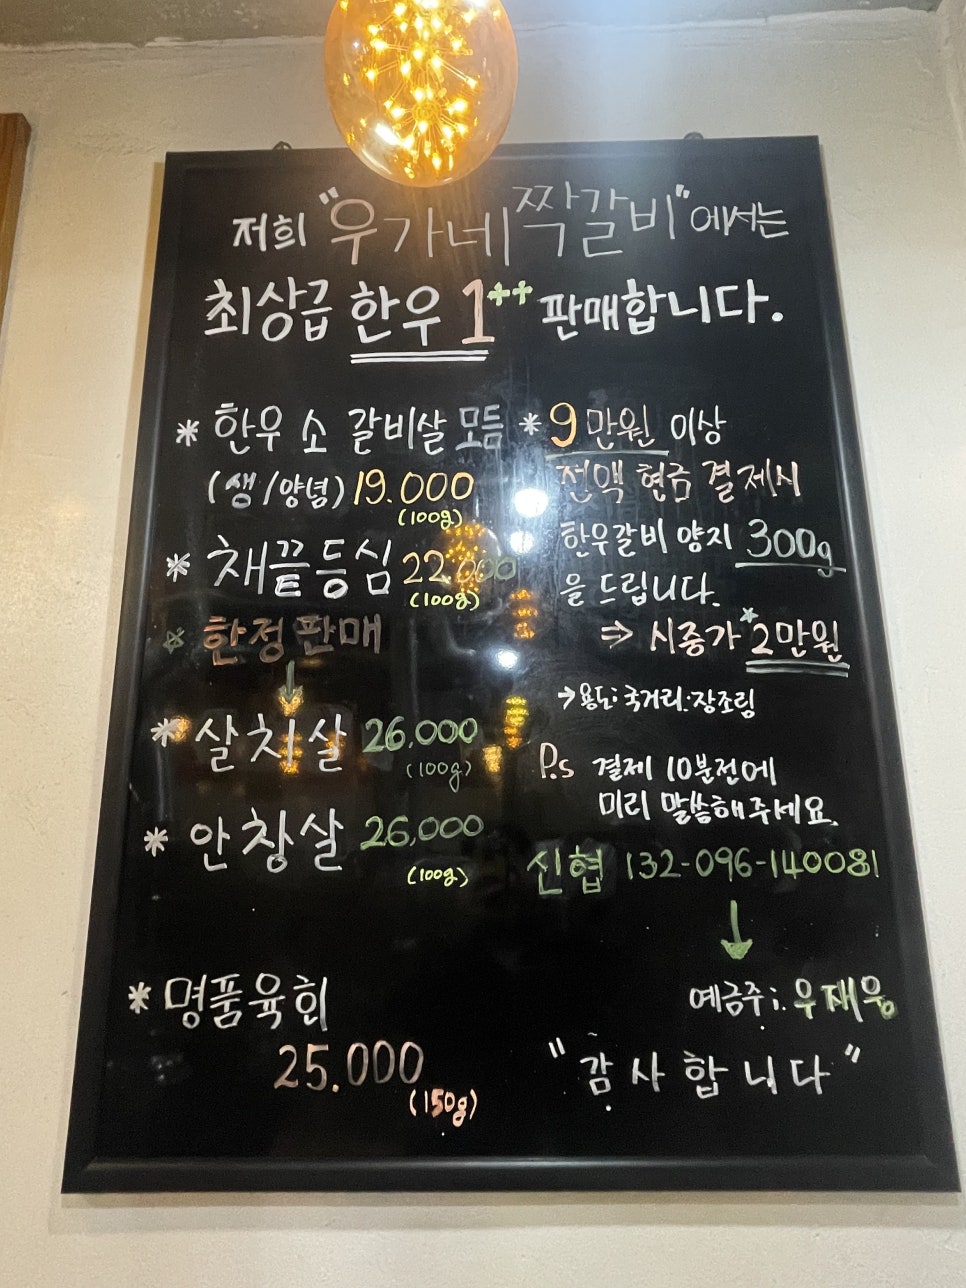 저희 "우가네 짝갈비"에서는
최상급 한우 1++ 판매합니다.
* 한우 소 갈비살 모듬
(생/양념) 19.000
(100g)
* 채끝등심 22.000
(100g)
☆ 한정판매
↓
* 살치살 26.000
(100g)
* 안창살 26,000
(100g)
* 명품육회
25.000
(150g)
* 9만원 이상
전액 현금 결제시
한우갈비 양지 300g
을 드립니다.
⇒ 시중가 *2만원
→ 용도: 국거리·장조림
P.s 결제 10분전에
미리 말씀해주세요.
신협 132-096-140081
↓
예금주: 우재웅
"감사합니다"